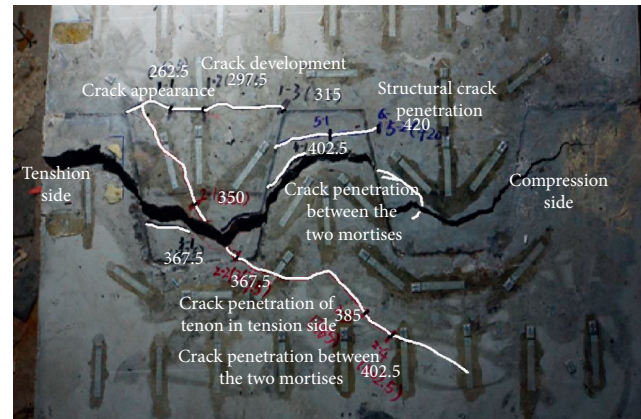 262.5
297.5
Crack development
Crack appearance
1-3
315
Structural crack
penetration
420
5-1
402.5
Tenshion
side
350
Crack penetration
between the
two mortises
Compression
side
367.5
367.5
Crack penetration of
tenon in tension side
385
Crack penetration between
the two mortises
402.5